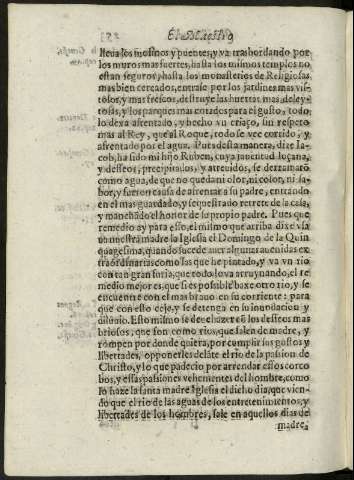 El Maestro
lleua los molinos y puentes, y va trasbordando por
los muros mas fuertes, hasta los mismos templos no
estan seguros, hasta los monasterios de Religiosas
mas bien cercados, entrase por los jardines mas vis-
tosos, y mas frescos, destruye las huertas mas deley-
tosas, y los parques mas cortados para el gusto, todo
lo dexa afrentado, y hecho vn eriaço, sin respeto
mas al Rey, que al Roque, todo se vee corrido, y
afrentado por el agua. Pues desta manera, dize Ia-
cob, ha sido mi hijo Ruben, cuya juuentud loçana,
y desseos, precipitados, y atreuidos, se derramarō
como agua, de que no quedan olor, ni color, ni sa-
bor, y fueron causa de afrentar a su padre, entrando
en el mas guardado, y sequestrado retrete de la casa,
y manchādo el honor de su propio padre. Pues que
remedio ay para esso, el mismo que arriba dixe vsa
ua nuestra madre la Iglesia el Domingo de la Quin
quagesima, quando sucede auer algunas auenidas ex
traordinarias como las que he pintado, y va vn rio
con tan gran furia, que todo lo va arruynando, el re
medio mejor es, que si es possible baxe otro rio, y se
encuentre con el mas brauo en su corriente: para
que con esto ceje, y se detenga en su inundacion y
diluuio. Esto mismo se deue hazer cō los desseos mas
briosos, que son como rios, que salen de madre, y
rompen por donde quiera, por cumplir sus gustos y
libertades, opponerles delāte el rio de la passion de
Christo, y lo que padecio por arrendar essos corco
bos, y essas passiones vehementes del hombre, como
lo haze la santa madre Iglesia el dicho dia, que vien-
do que el rio de las aguas de los entretenimientos, y
libertades de los hombres, sale en aquellos dias de
madre,